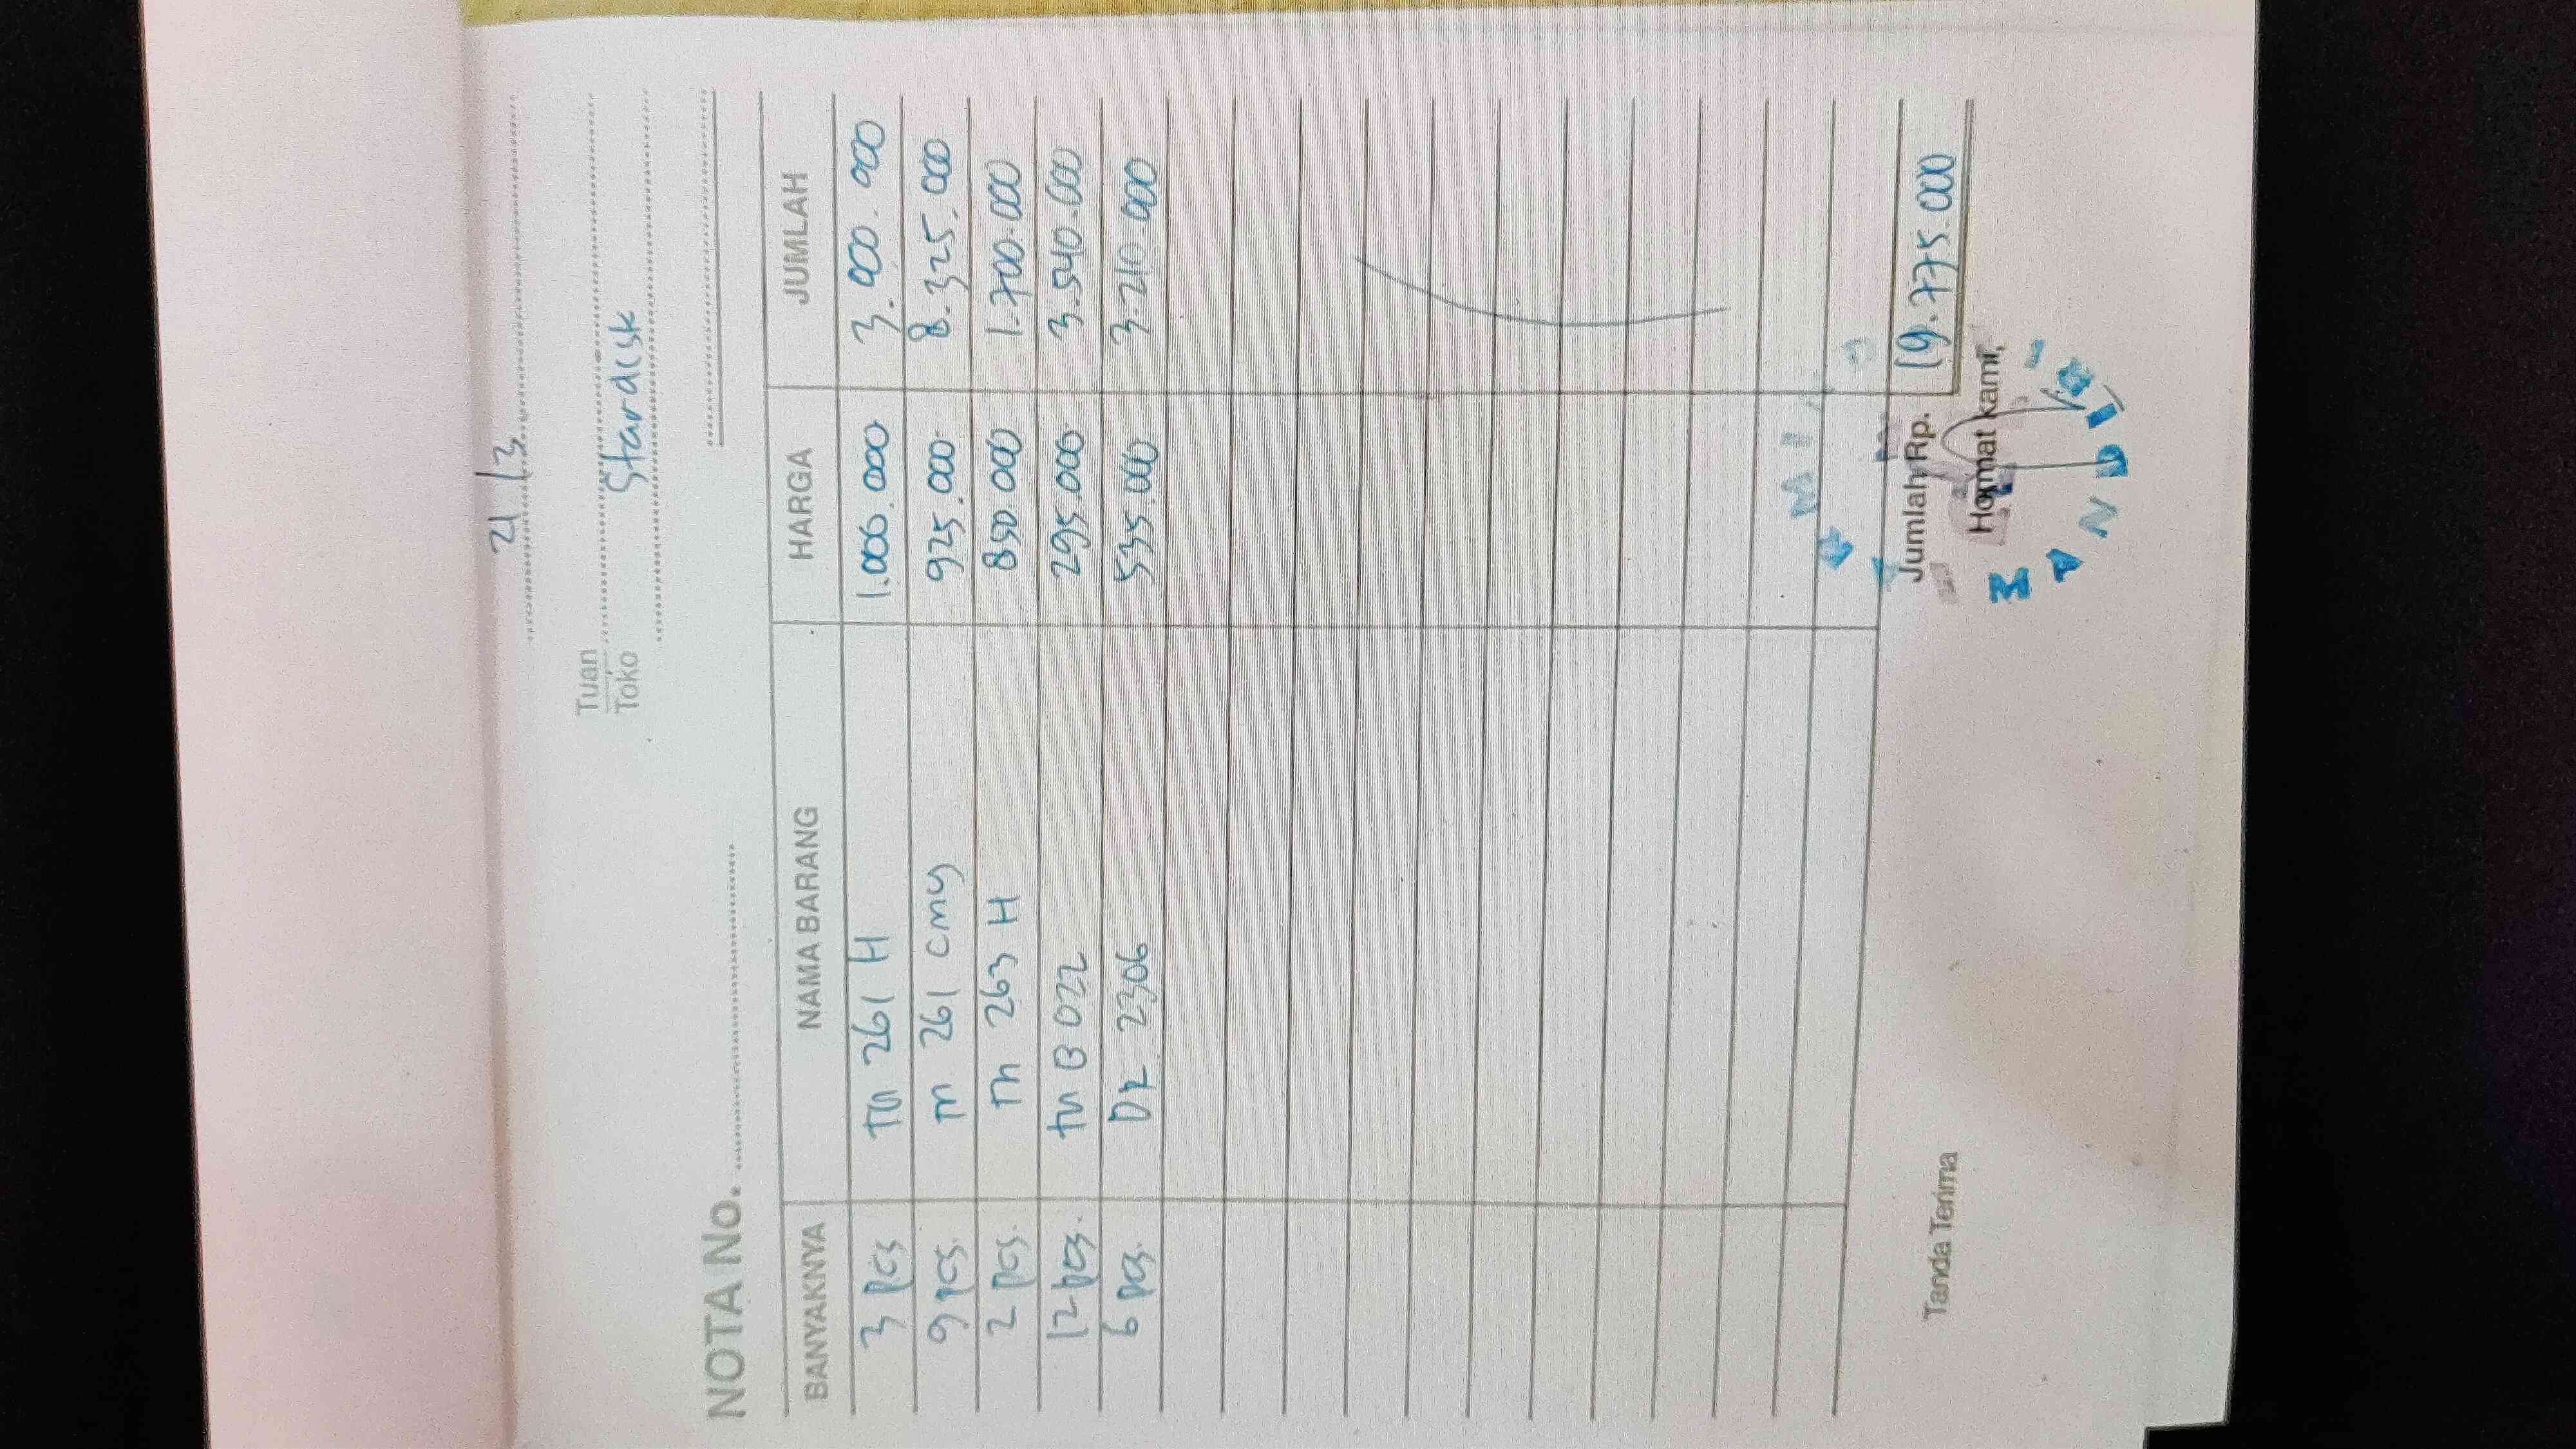 21/3
Tuan
Toko Stardisk
NOTA No.
BANYAKNYA NAMA BARANG HARGA JUMLAH
3 pcs Tn 261 H 1.000.000 3.000.000
9 pcs. Tn 261 cmy 925.000 8.325.000
2 pcs. Tn 263 H 850.000 1.700.000
12 pcs. tn B 022 295.000 3.540.000
6 pcs. Dr 2306 535.000 3.210.000
Jumlah Rp. 19.775.000
Tanda Terima Hormat kami,
MANDIRI